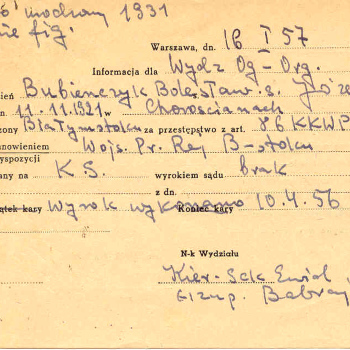 wodzony 1931
nie fig.
Warszawa, dn. 16 I 57
Informacja dla Wydz Og-Org.
Bubieńczyk Bolesław s. Józe
dn. 11.11.1921 w Choroszczanach
zony Białymstoku za przestępstwo z art. 86 KKWP
anowieniem Wojs. Pr. Rej B-stoku
yspozycji
any na K.S. wyrokiem sądu brak
z dn.
ątek kary Wyrok wykonano Koniec kary 10.4.56
N-k Wydziału
Kier-Sek Ewid